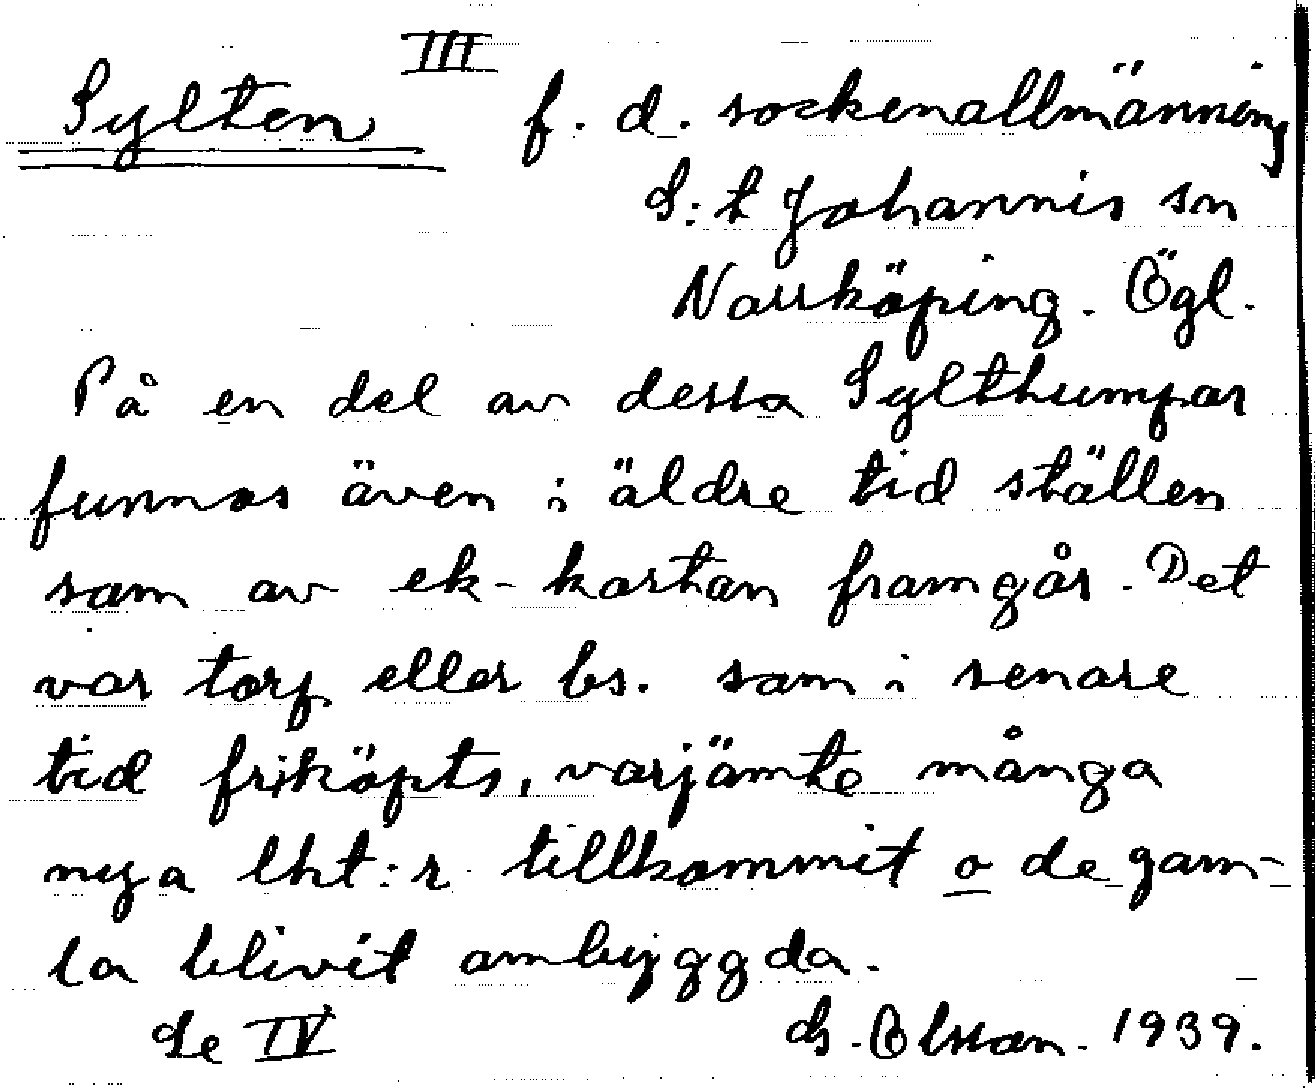 III
Sylten f. d. sockenallmänning
S:t Johannis sn
Norrköping. Ögl.
På en del av dessa Sylthumpar
funnos även i äldre tid ställen
som av ek-kartan framgår. Det
var torp eller bs. som i senare
tid friköpts, varjämte många
nya lht:r tillkommit o de gam-
la blivit ombyggda.
Se IV G. Olsson. 1939.